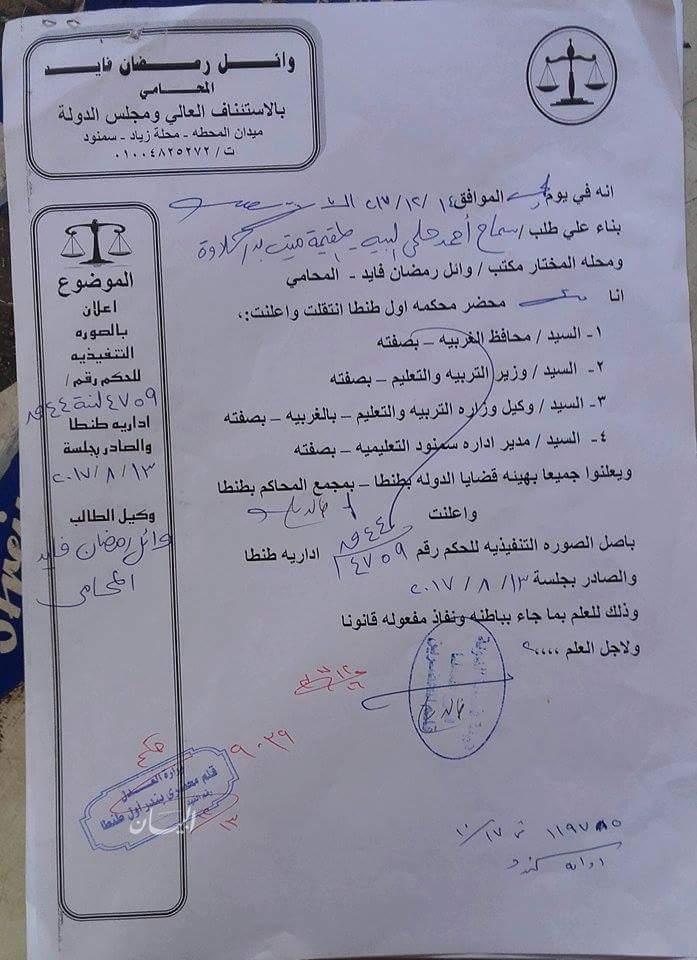 وائـــل رمـضــان فـايــد
المحامي
بالاستئناف العالي ومجلس الدولة
ميدان المحطه - محلة زياد - سمنود
ت/ ٠١٠٠٤٨٢٥٢٧٢
انه في يوم الموافق ١٤/ ١٢/ ٢٠١٧
بناء علي طلب / سماح أحمد حلمي
ومحله المختار مكتب / وائل رمضان فايد - المحامي
انا محضر محكمه اول طنطا انتقلت واعلنت:،
١- السيد / محافظ الغربيه – بصفته
٢- السيد / وزير التربيه والتعليم – بصفته
٣- السيد / وكيل وزاره التربيه والتعليم – بالغربيه – بصفته
٤- السيد / مدير اداره سمنود التعليميه – بصفته
ويعلنوا جميعا بهيئه قضايا الدوله بطنطا – بمجمع المحاكم بطنطا
واعلنت
باصل الصوره التنفيذيه للحكم رقم ١٤٧٥٩ ٤٤ق اداريه طنطا
والصادر بجلسة ١٣/ ٨ /٢٠١٧
وذلك للعلم بما جاء بباطنه ونفاذ مفعوله قانونا
ولاجل العلم ،،،،
الموضوع
اعلان
بالصوره
التنفيذيه
للحكم رقم /
لسنة ٤٤ق
اداريه طنطا
والصادر بجلسة
١٣ / ٨ / ٢٠١٧
وكيل الطالب
وائل رمضان فايد
المحامى
٩٠٣٩
وزارة العدل
قلم محضري بندر اول طنطا
البيان